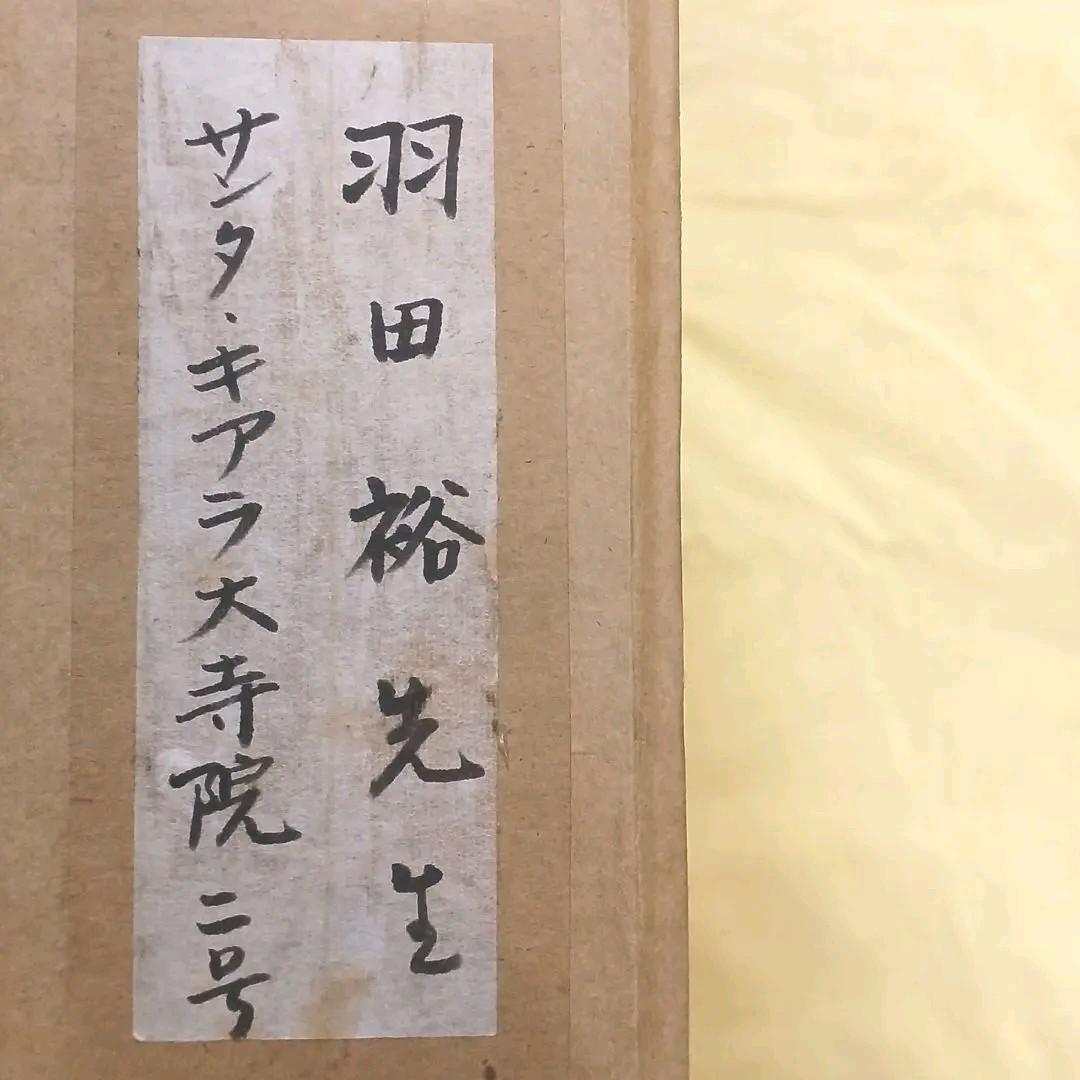 羽田裕先生
サンタ・キアラ大寺院二号